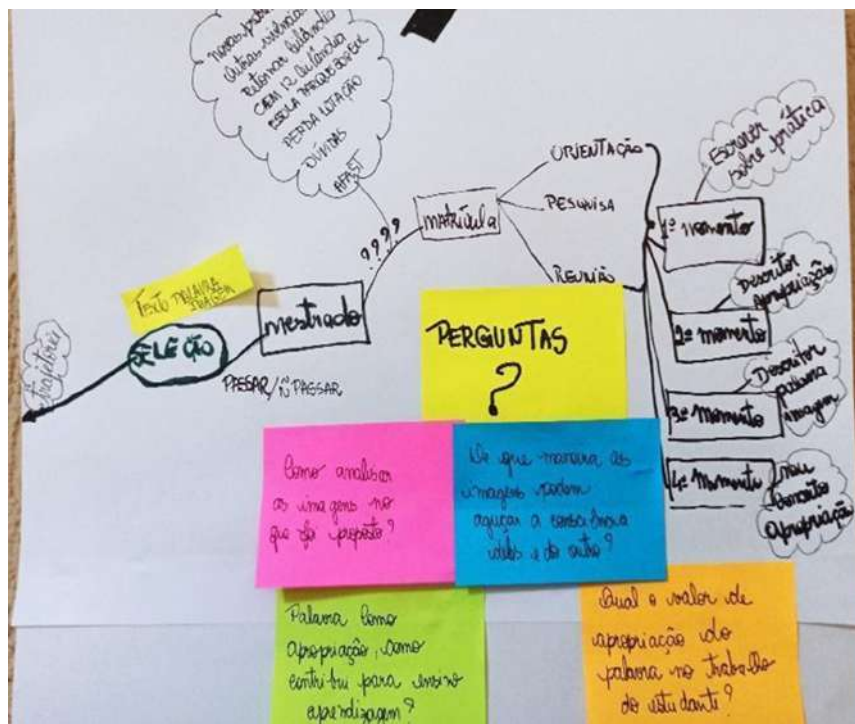 Outras
Retornar
CAEM 12
ESCOLA PARQUE
PERDA LOTAÇÃO
DÚVIDAS
AFAST
????
matrícula
ORIENTAÇÃO
PESQUISA
REUNIÃO
Escrever
sobre prática
1º momento
Descritor
apropriação
2º momento
Descritor
palavra
imagem
3º Momento
4º Momento
Conceito
apropriação
TEXTO PALAVRA
IMAGEM
mestrado
SELEÇÃO
PASSAR/Ñ PASSAR
trajetória
PERGUNTAS
?
Como analisar
as imagens no
que foi proposto?
De que maneira as
imagens podem
aguçar a consciência
deles e do outro?
Palavra como
apropriação, como
contribui para ensino
aprendizagem?
Qual o valor de
apropriação do
palavra no trabalho
do estudante?